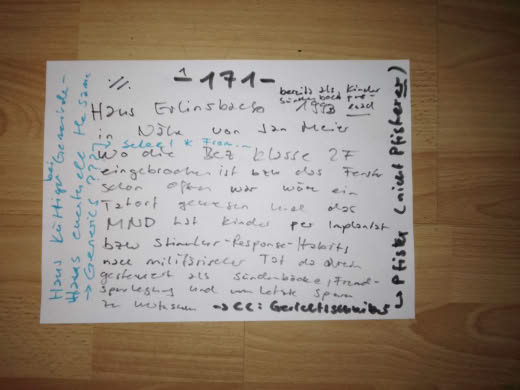 -171-
bereits als Kinder
Sündenbock
1993
Haus Erlinsbach
in Nähe von Jan Meier
wo die Bez Klasse 2F
eingebrochen ist bzw das Fenster
schon offen war wäre ein
Tatort gewesen und das
MND hat Kinder per Implantat
bzw Stimulus-Response-Habits
nach militärischer Tat da
gesteuert als Sündenböcke, Fremd-
spurlegung und um letzte Spuren
zu
→ CC: Gerichtsschreiber
Haus Küttigen bei Gemeinde-
Haus eventuell the same
→ Generics ????
select * from
→ Pfister (nicht Pfisterer)